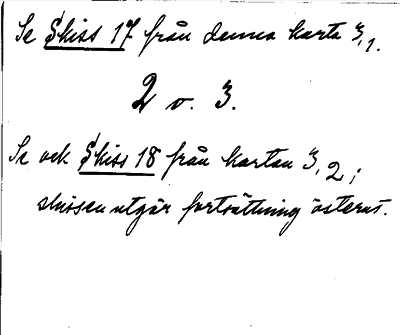 Se Skiss 17 från denna karta 3,1.
2 o. 3.
Se ock Skiss 18 från kartan 3,2;
skissen utgör fortsättning österut.